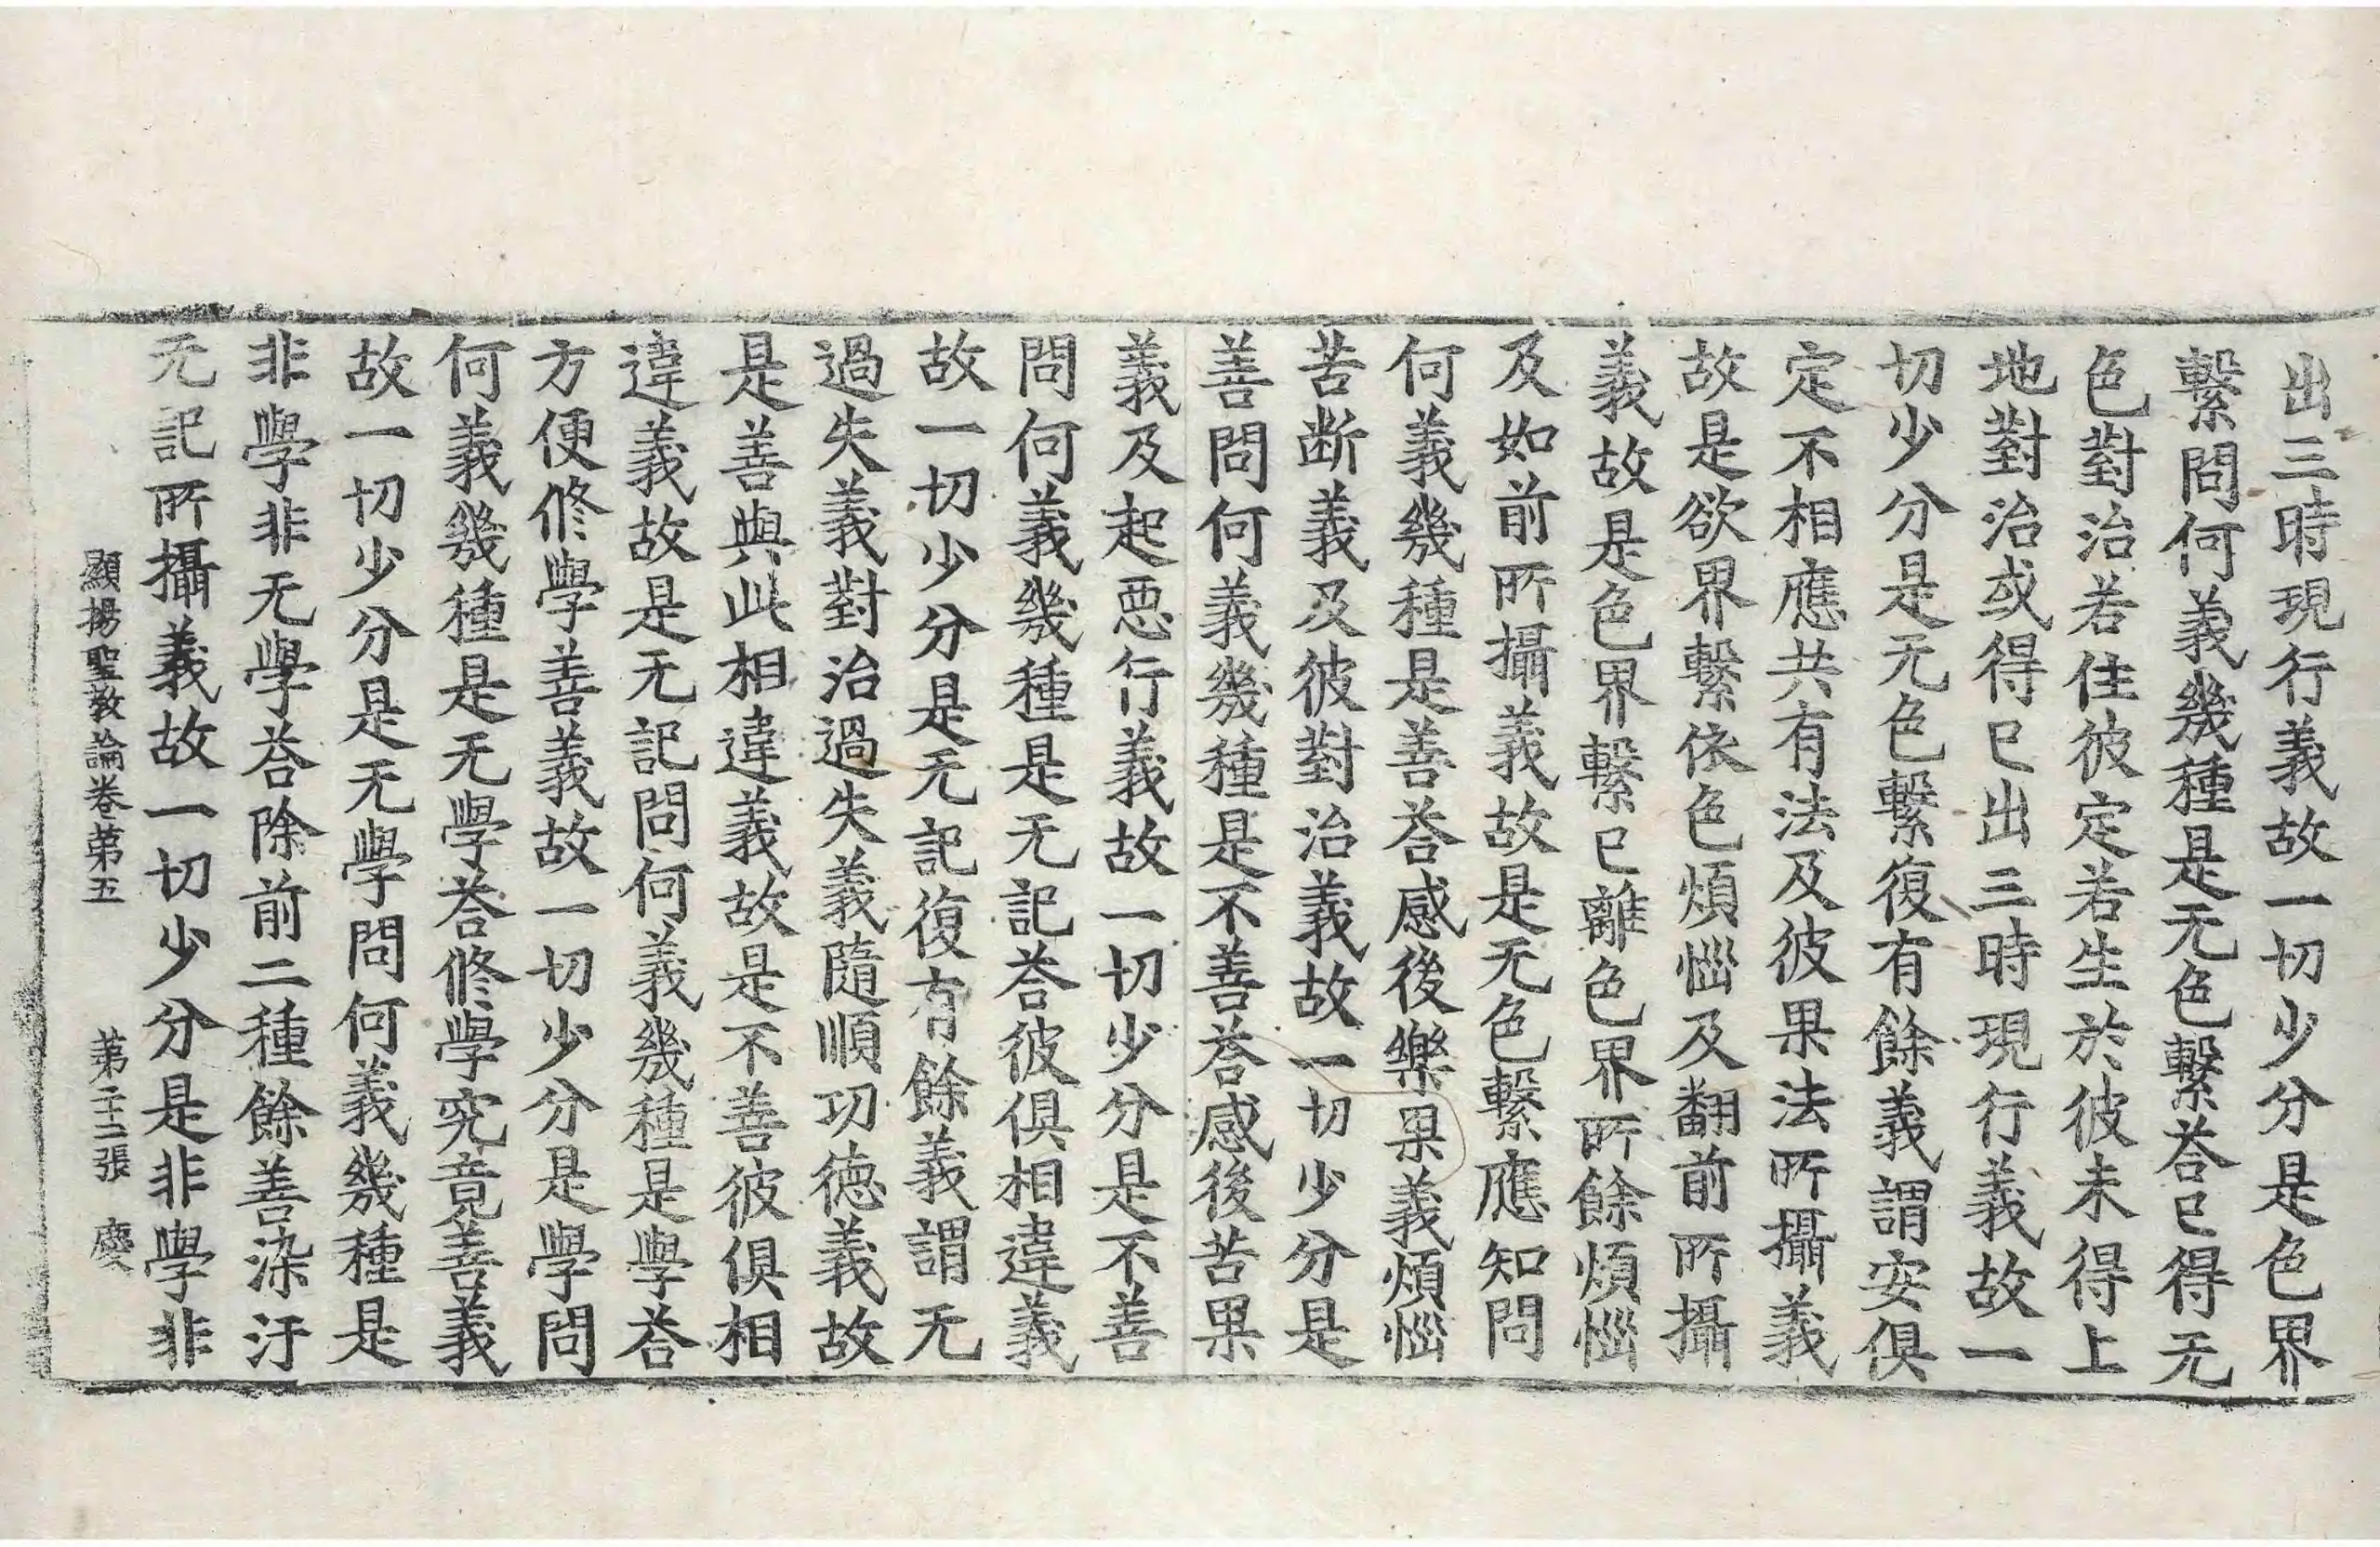 出三時現行義故一切少分是色界
繫問何義幾種是无色繫荅已得无
色對治若住彼定若生於彼未得上
地對治或得已出三時現行義故一
切少分是无色繫復有餘義謂安俱
定不相應共有法及彼果法所攝義
故是欲界繫依色煩惱及翻前所攝
義故是色界繫已離色界所餘煩惱
及如前所攝義故是无色繫應知問
何義幾種是善荅感後樂果義煩惱
苦断義及彼對治義故一切少分是
善問何義幾種是不善荅感後苦果
義及起惡行義故一切少分是不善
問何義幾種是无記荅彼俱相違義
故一切少分是无記復有餘義謂无
過失義對治過失義隨順功德義故
是善與此相違義故是不善彼俱相
違義故是无記問何義幾種是學荅
方便修學善義故一切少分是學問
何義幾種是无學荅修學究竟善義
故一切少分是无學問何義幾種是
非學非无學荅除前二種餘善染汙
无記所攝義故一切少分是非學非
顯揚聖教論卷苐五 苐二十二張 慶